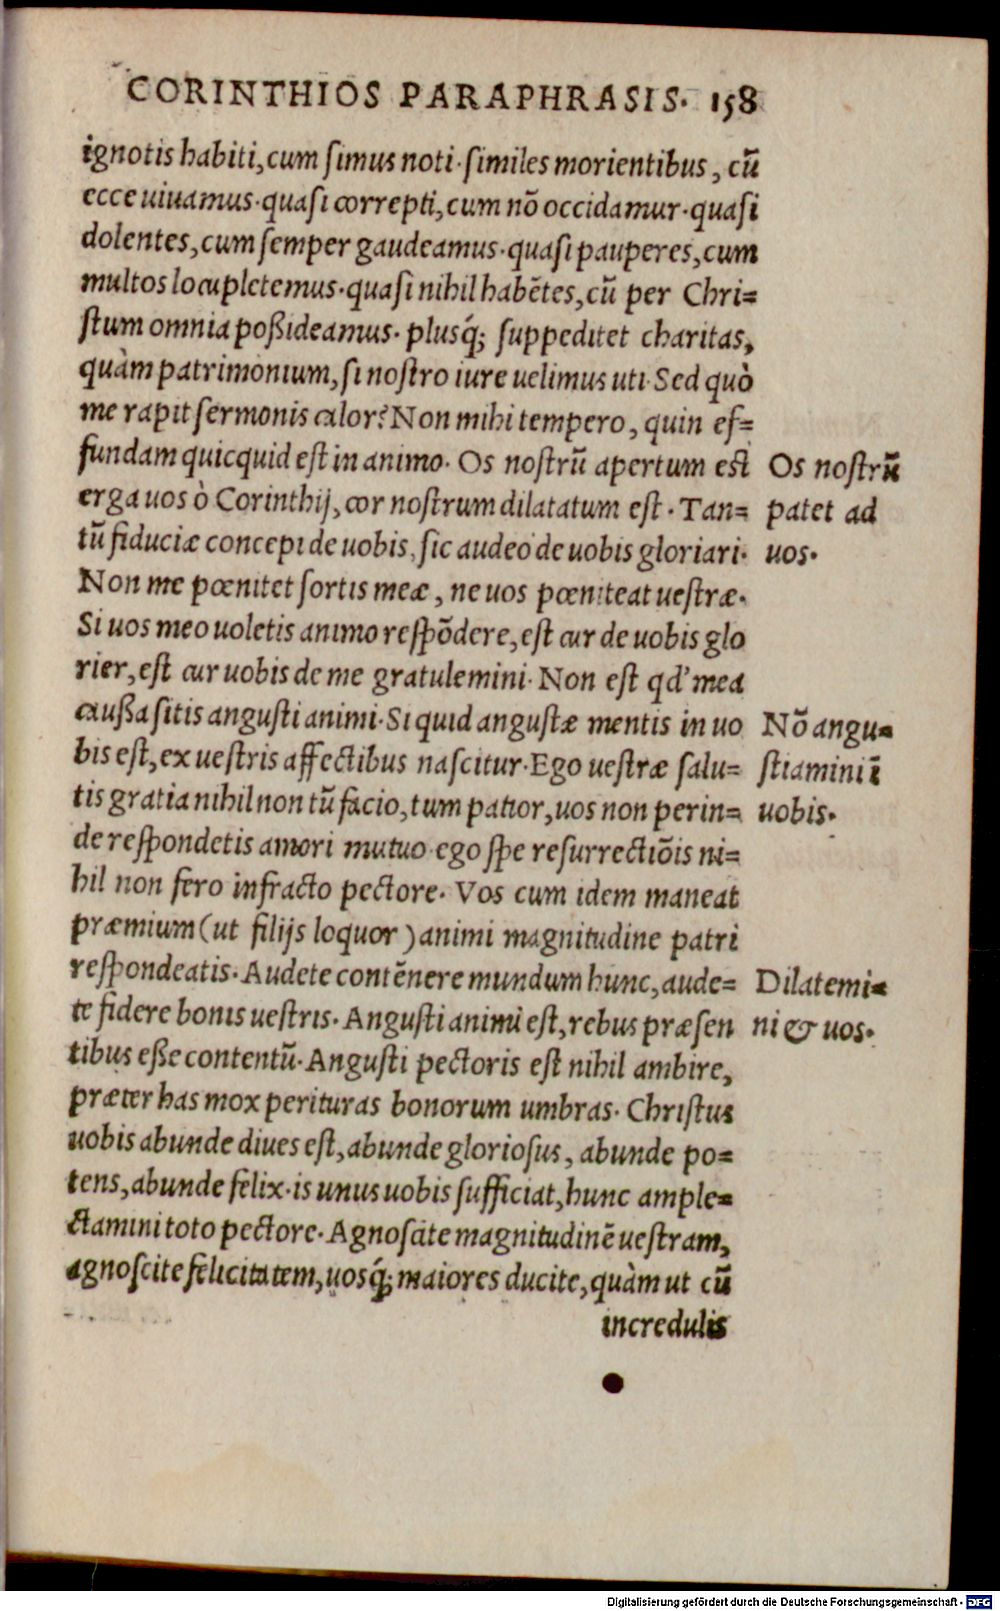 CORINTHIOS PARAPHRASIS. 158
ignotis habiti, cum simus noti. similes morientibus, cū
ecce uiuamus. quasi correpti, cum nō occidamur. quasi
dolentes, cum semper gaudeamus. quasi pauperes, cum
multos locupletemus. quasi nihil habētes, cū per Chri=
stum omnia poßideamus. plusq́; suppeditet charitas,
quàm patrimonium, si nostro iure uelimus uti. Sed quò
me rapit sermonis calor? Non mihi tempero, quin ef=
fundam quicquid est in animo. Os nostrū apertum est
erga uos ò Corinthij, cor nostrum dilatatum est. Tan=
tū fiduciæ concepi de uobis, sic audeo de uobis gloriari.
Non me pœnitet sortis meæ, ne uos pœniteat uestræ.
Si uos meo uoletis animo respōdere, est cur de uobis glo
rier, est cur uobis de me gratulemini. Non est qd' mea
caußa sitis angusti animi. Si quid angustæ mentis in uo
bis est, ex uestris affectibus nascitur. Ego uestræ salu=
tis gratia nihil non tū facio, tum patior, uos non perin=
de respondetis amori mutuo. ego spe resurrectiōis ni=
hil non fero infracto pectore. Vos cum idem maneat
præmium (ut filijs loquor) animi magnitudine patri
respondeatis. Audete contēnere mundum hunc, aude=
te fidere bonis uestris. Angusti animi est, rebus præsen
tibus eße contentū. Angusti pectoris est nihil ambire,
præter has mox perituras bonorum umbras. Christus
uobis abunde diues est, abunde gloriosus, abunde po=
tens, abunde felix. is unus uobis sufficiat, hunc ample=
ctamini toto pectore. Agnoscite magnitudinē uestram,
agnoscite felicitatem, uosq́; maiores ducite, quàm ut cū
incredulis
Os nostrū
patet ad
uos.
Nō angu=
stiamini ī
uobis.
Dilatemi=
ni & uos.
Digitalisierung gefördert durch die Deutsche Forschungsgemeinschaft - DFG